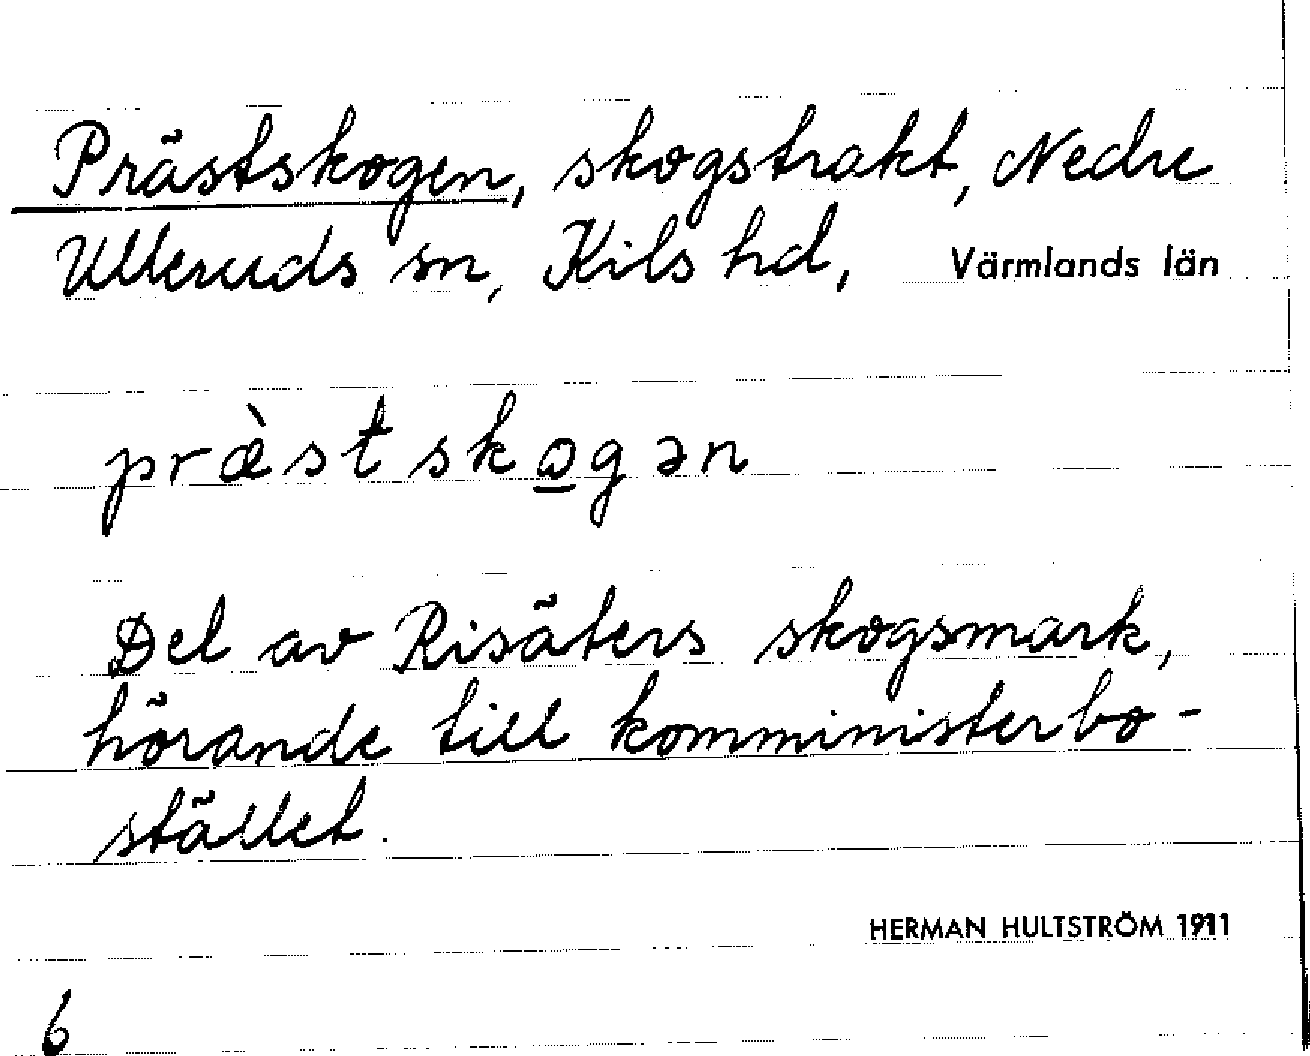 Prästskogen, skogstrakt, Nedre
Ulleruds sn, Kils hd, Värmlands län
præ̀stskogən
Del av Risäters skogsmark,
hörande till komministerbo-
stället.
HERMAN HULTSTRÖM 1911
6